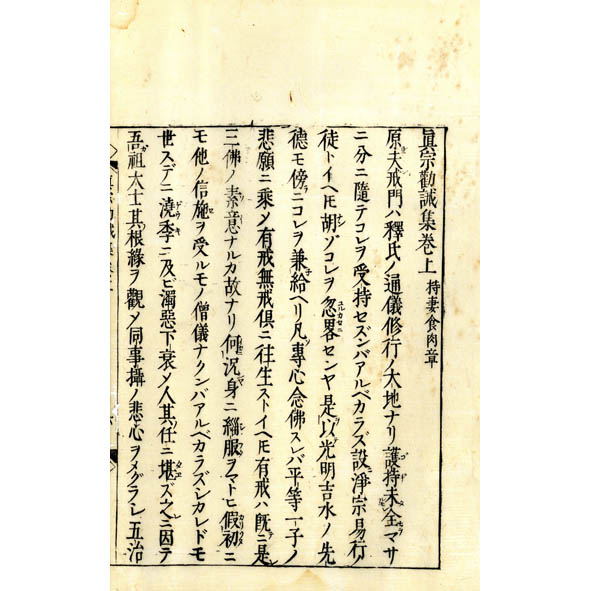 眞宗勸誡集巻上 持妻食肉章
原夫戒門ハ釋氏ノ通儀修行ノ大地ナリ護持未全マサ
ニ分ニ隨テコレヲ受持セズンバアルベカラズ設淨宗易行
徒トイヘ𪜈胡ゾコレヲ忽畧センヤ是以光明吉水ノ先
德モ傍ニコレヲ兼給ヘリ凡專心念佛スレバ平等一子ノ
悲願ニ乘〆有戒無戒倶ニ往生ストイヘ𪜈有戒ハ既ニ是
三佛ノ素意ナルカ故ナリ何況身ニ緇服ヲマトヒ假初ニ
モ他ノ信施ヲ受ルモノ僧儀ナクンバアルベカラズシカレドモ
世スデニ澆季ニ及ビ濁惡下衰〆人其任ニ堪ズ之ニ因テ
吾祖大士其根緣ヲ觀〆同事攝ノ悲心ヲメグラシ五治